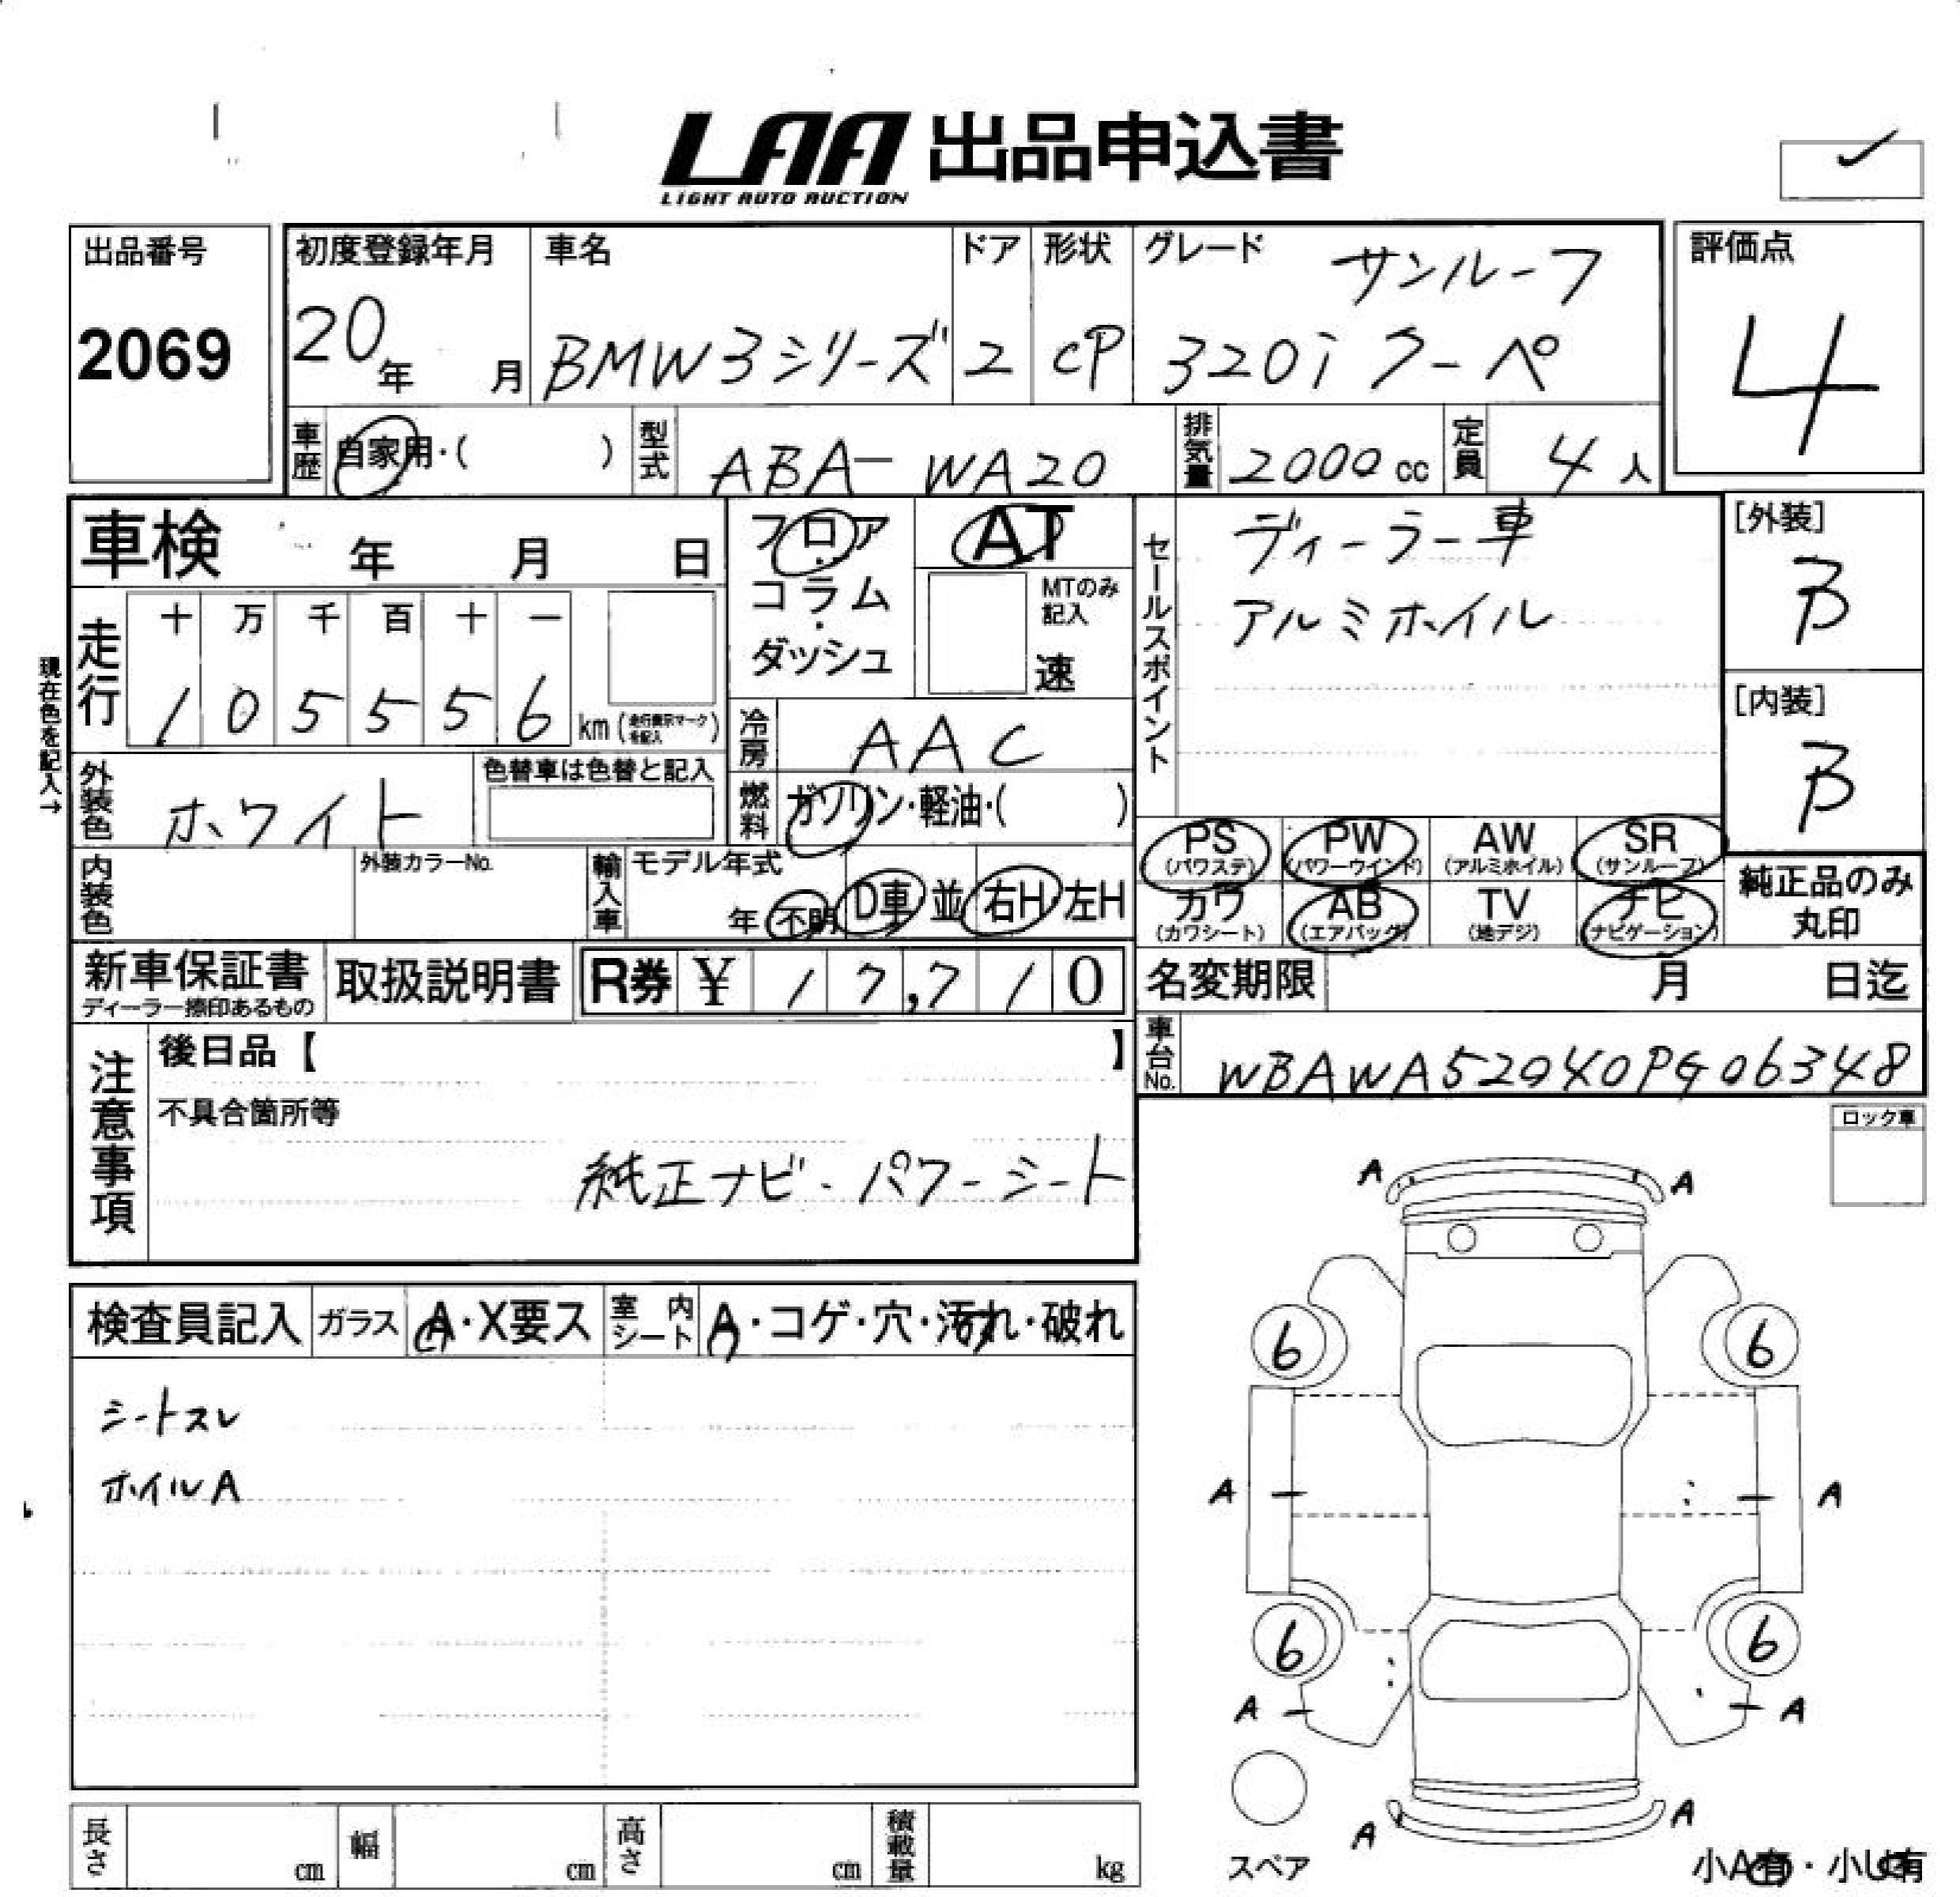 LAA 出品申込書
LIGHT AUTO AUCTION
出品番号
2069
初度登録年月
20年 月
車名
BMW3シリーズ
ドア
2
形状
CP
グレード
サンルーフ
320i クーペ
評価点
4
車歴 自家用・( )
型式 ABA-WA20
排気量 2000 cc
定員 4 人
車検 年 月 日
フロア・コラム・ダッシュ
AT
MTのみ記入
速
セールスポイント
ディーラー車
アルミホイル
[外装]
B
[内装]
B
現在色を記入→
走行
十 万 千 百 十 一
1 0 5 5 5 6 km (走行表示マークを記入)
冷房 AAC
外装色 ホワイト
色替車は色替と記入
燃料 ガソリン・軽油・( )
内装色
外装カラーNo.
輸入車
モデル年式
年 不明
D車 並 右H 左H
PS (パワステ)
PW (パワーウインド)
AW (アルミホイル)
SR (サンルーフ)
カワ (カワシート)
AB (エアバッグ)
TV (地デジ)
ナビ (ナビゲーション)
純正品のみ
丸印
新車保証書
ディーラー捺印あるもの
取扱説明書
R券 ¥ 17,710
名変期限 月 日迄
車台No. WBAWA52040PG06348
注意事項
後日品【 】
不具合箇所等
純正ナビ・パワーシート
ロック車
検査員記入 ガラス A・X要ス 室内シート A・コゲ・穴・汚れ・破れ
シートスレ
ホイルA
A A
6 6
A A
6 6
A A
A A
スペア
小A有・小U有
長さ cm 幅 cm 高さ cm 積載量 kg